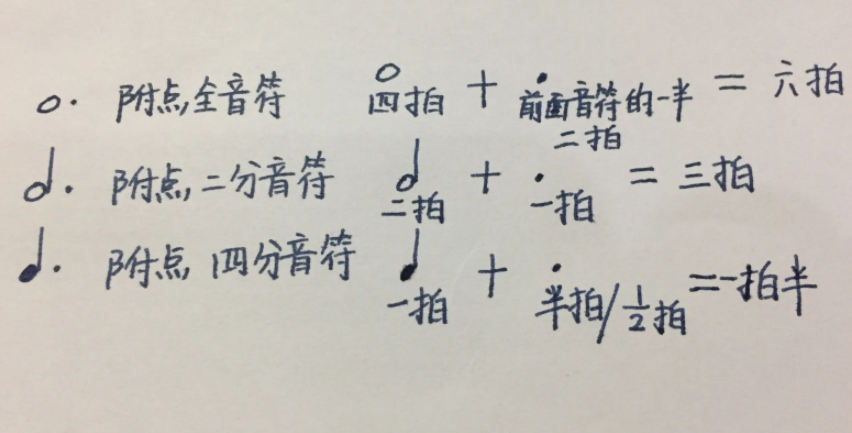 𝅝. 附点全音符 𝅝 四拍 + · 前面音符的一半 二拍 = 六拍
𝅗𝅥. 附点二分音符 𝅗𝅥 二拍 + · 一拍 = 三拍
𝅘𝅥. 附点四分音符 𝅘𝅥 一拍 + · 半拍/½拍 =一拍半